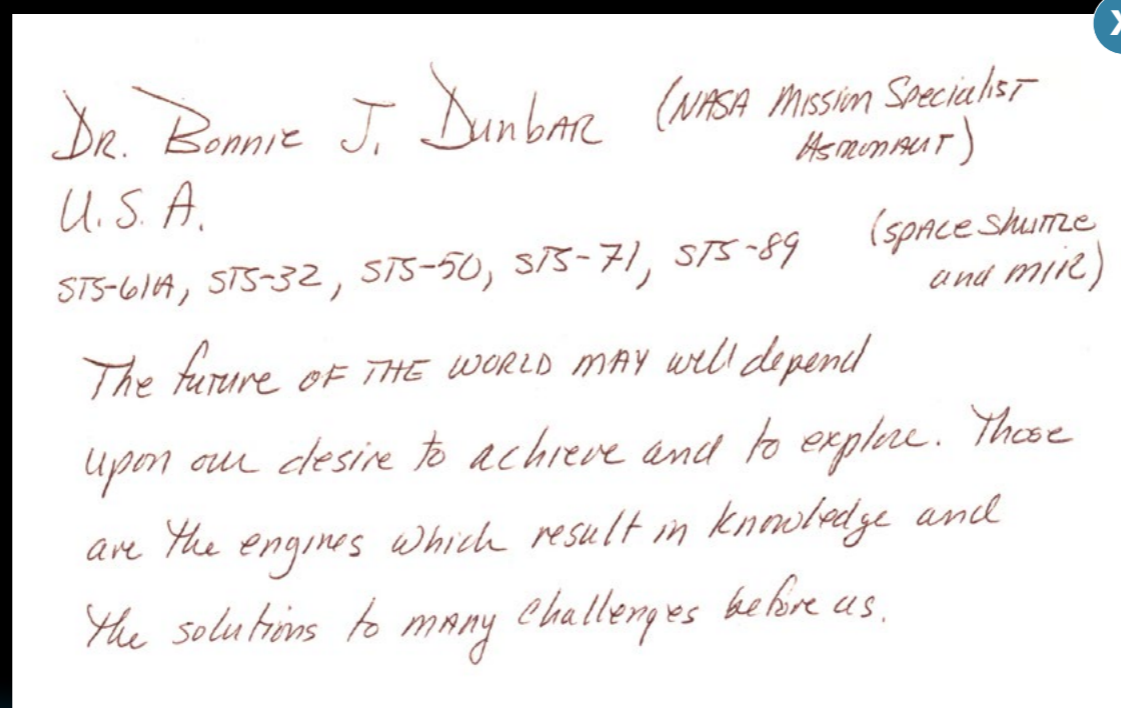 Dr. Bonnie J. Dunbar (NASA Mission Specialist
Astronaut)
U.S.A.
STS-61A, STS-32, STS-50, STS-71, STS-89 (space shuttle
and mir)
The future of the world may well depend
upon our desire to achieve and to explore. Those
are the engines which result in knowledge and
the solutions to many challenges before us.